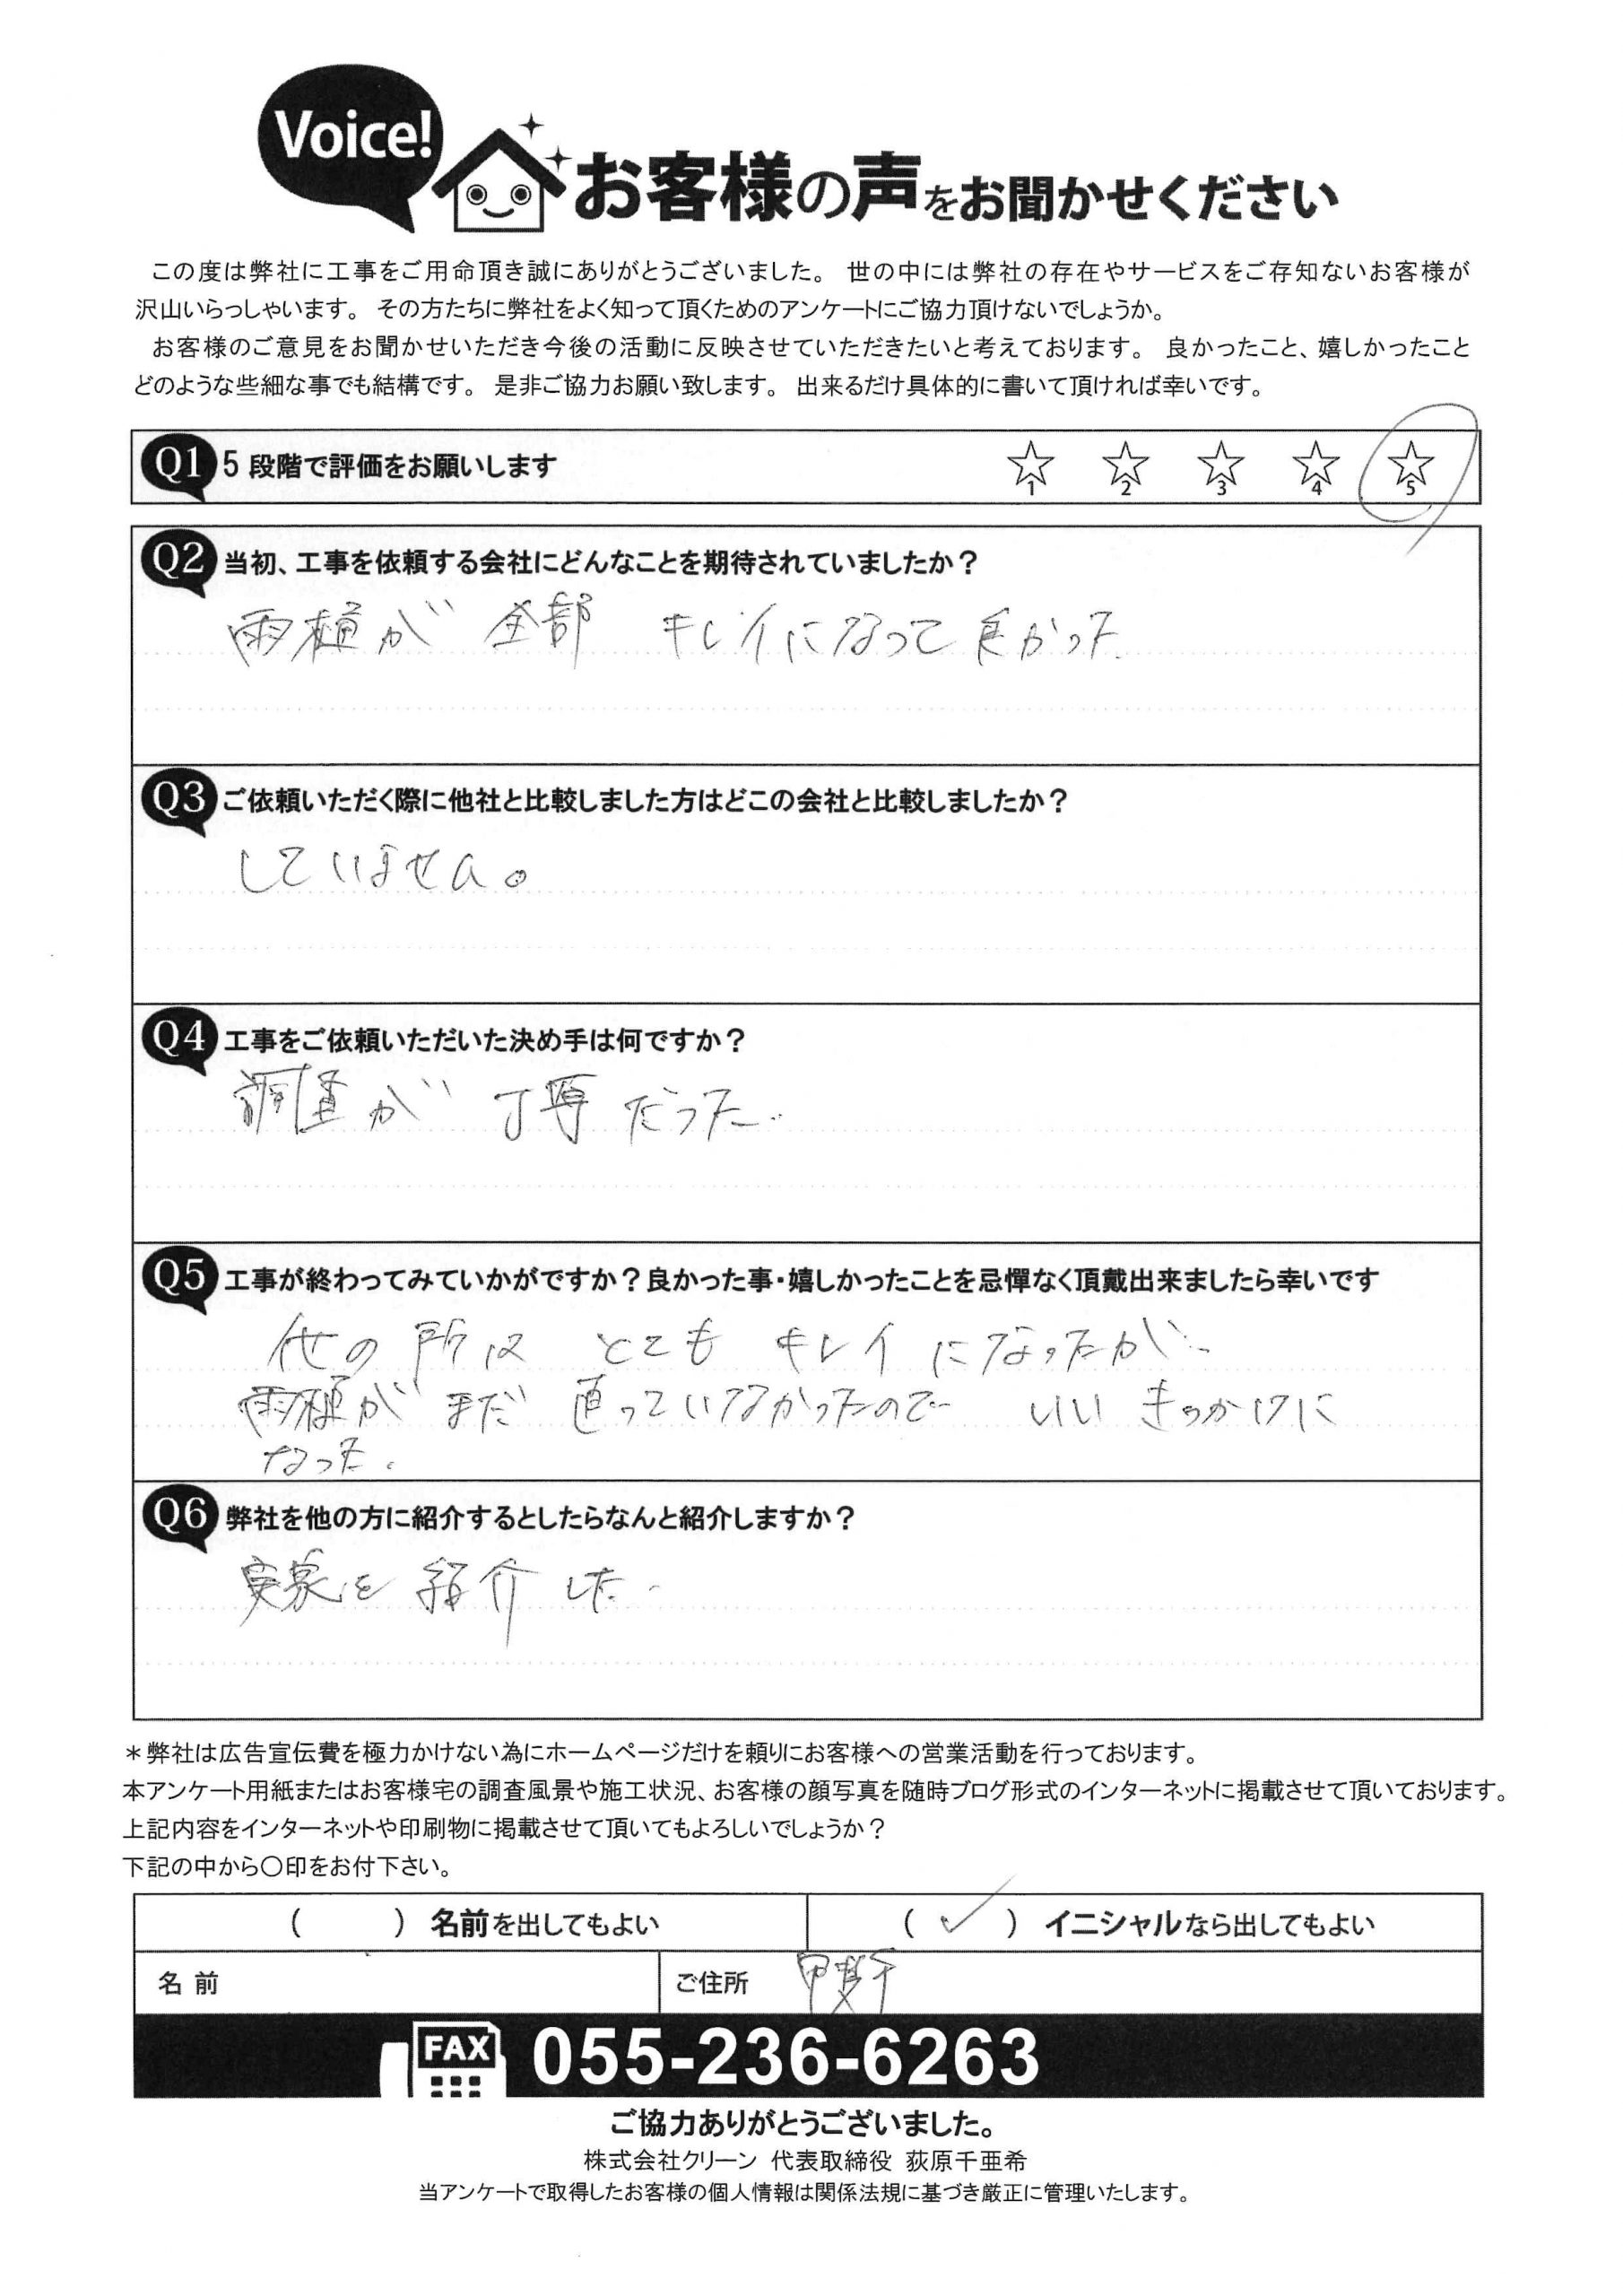 Voice!
お客様の声をお聞かせください
この度は弊社に工事をご用命頂き誠にありがとうございました。 世の中には弊社の存在やサービスをご存知ないお客様が
沢山いらっしゃいます。 その方たちに弊社をよく知って頂くためのアンケートにご協力頂けないでしょうか。
お客様のご意見をお聞かせいただき今後の活動に反映させていただきたいと考えております。 良かったこと、嬉しかったこと
どのような些細な事でも結構です。 是非ご協力お願い致します。 出来るだけ具体的に書いて頂ければ幸いです。
Q1 5 段階で評価をお願いします ☆1 ☆2 ☆3 ☆4 ☆5
Q2 当初、工事を依頼する会社にどんなことを期待されていましたか？
雨樋が 全部 キレイになって良かった
Q3 ご依頼いただく際に他社と比較しました方はどこの会社と比較しましたか？
していません。
Q4 工事をご依頼いただいた決め手は何ですか？
調査が 丁寧だった.
Q5 工事が終わってみていかがですか？良かった事・嬉しかったことを忌憚なく頂戴出来ましたら幸いです
他の所は とても キレイになったが
雨樋が まだ 直っていなかったので いい きっかけに
なった.
Q6 弊社を他の方に紹介するとしたらなんと紹介しますか？
実家を 紹介した
＊弊社は広告宣伝費を極力かけない為にホームページだけを頼りにお客様への営業活動を行っております。
本アンケート用紙またはお客様宅の調査風景や施工状況、お客様の顔写真を随時ブログ形式のインターネットに掲載させて頂いております。
上記内容をインターネットや印刷物に掲載させて頂いてもよろしいでしょうか？
下記の中から〇印をお付下さい。
（　　） 名前を出してもよい （ ✓ ） イニシャルなら出してもよい
名 前 ご住所 甲斐市
FAX 055-236-6263
ご協力ありがとうございました。
株式会社クリーン 代表取締役 荻原千亜希
当アンケートで取得したお客様の個人情報は関係法規に基づき厳正に管理いたします。